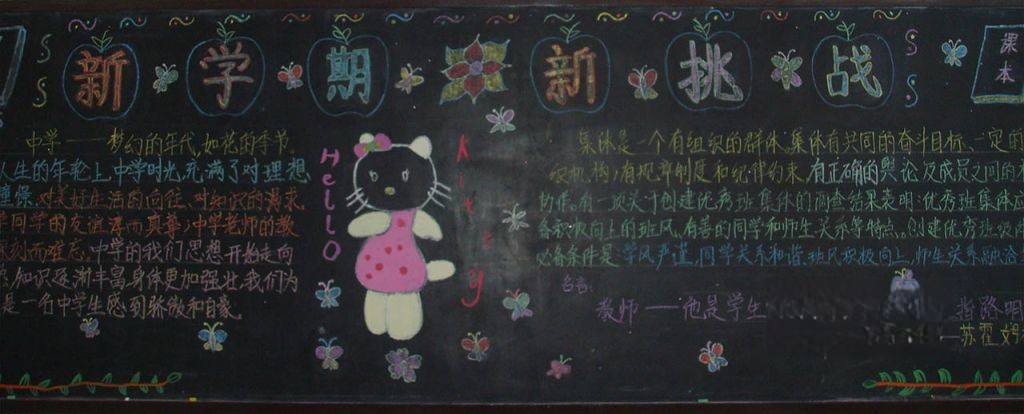 新学期 新挑战
课本
中学——梦幻的年代,如花的季节.
人生的年轮上,中学时光,充满了对理想
憧憬.对美好生活的向往、对知识的渴求.
同学的友谊
真挚;中学老师的教
深刻而难忘.中学的我们思想开始走向
知识逐渐丰富,身体更加强壮,我们为
是一名中学生感到骄傲和自豪.
Hello
Kitty
集体是一个有组织的群体.集体有共同的奋斗目标、一定的
组织机构,有规章制度和纪律约束.有正确的舆论及成员之间的
协作.有一次关于创建优秀班集体的调查结果表明:优秀班集体应
备积极向上的班风、有善的同学和师生关系等特点.创建优秀班级
必备条件是:学风严谨,同学关系和谐,班风积极向上,师生关系融洽
名言:
教师——他是学生
指路明
——苏霍